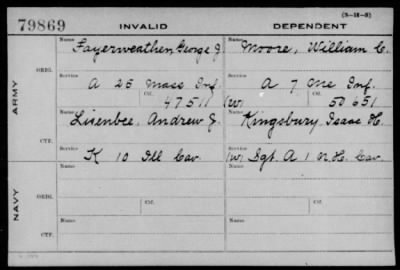 (3-12-5)
79869 INVALID DEPENDENT
ARMY
ORIG.
Name Fayerweather, George J. Name Moore, William C.
Service A 25 Mass Inf. Service A 7 Me Inf.
Ctf. 47511 (W) Ctf. 50651
CTF.
Name Lisenbee, Andrew J. Name Kingsbury, Isaac H.
Service K 10 Ill Cav. Service (W) Sgt. A 1 N.H. Cav.
NAVY
ORIG.
Name Name
Service Service
Ctf. Ctf.
CTF.
Name Name
Service Service